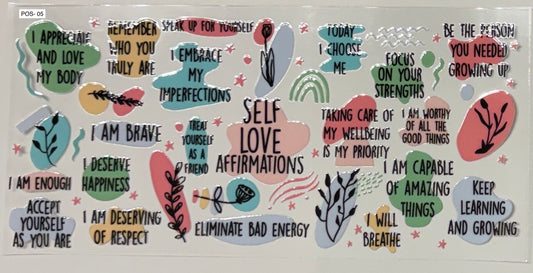 POS- 05
I APPRECIATE
AND LOVE
MY BODY
REMEMBER
WHO YOU
TRULY ARE
SPEAK UP FOR YOURSELF
I EMBRACE
MY
IMPERFECTIONS
TODAY
I CHOOSE
ME
FOCUS
ON YOUR
STRENGTHS
BE THE PERSON
YOU NEEDED
GROWING UP
I AM BRAVE
TREAT
YOURSELF
AS A
FRIEND
SELF
LOVE
AFFIRMATIONS
TAKING CARE OF
MY WELLBEING
IS MY PRIORITY
I AM WORTHY
OF ALL THE
GOOD THINGS
I AM ENOUGH
I DESERVE
HAPPINESS
I AM CAPABLE
OF AMAZING
THINGS
ACCEPT
YOURSELF
AS YOU ARE
I AM DESERVING
OF RESPECT
ELIMINATE BAD ENERGY
I WILL
BREATHE
KEEP
LEARNING
AND GROWING